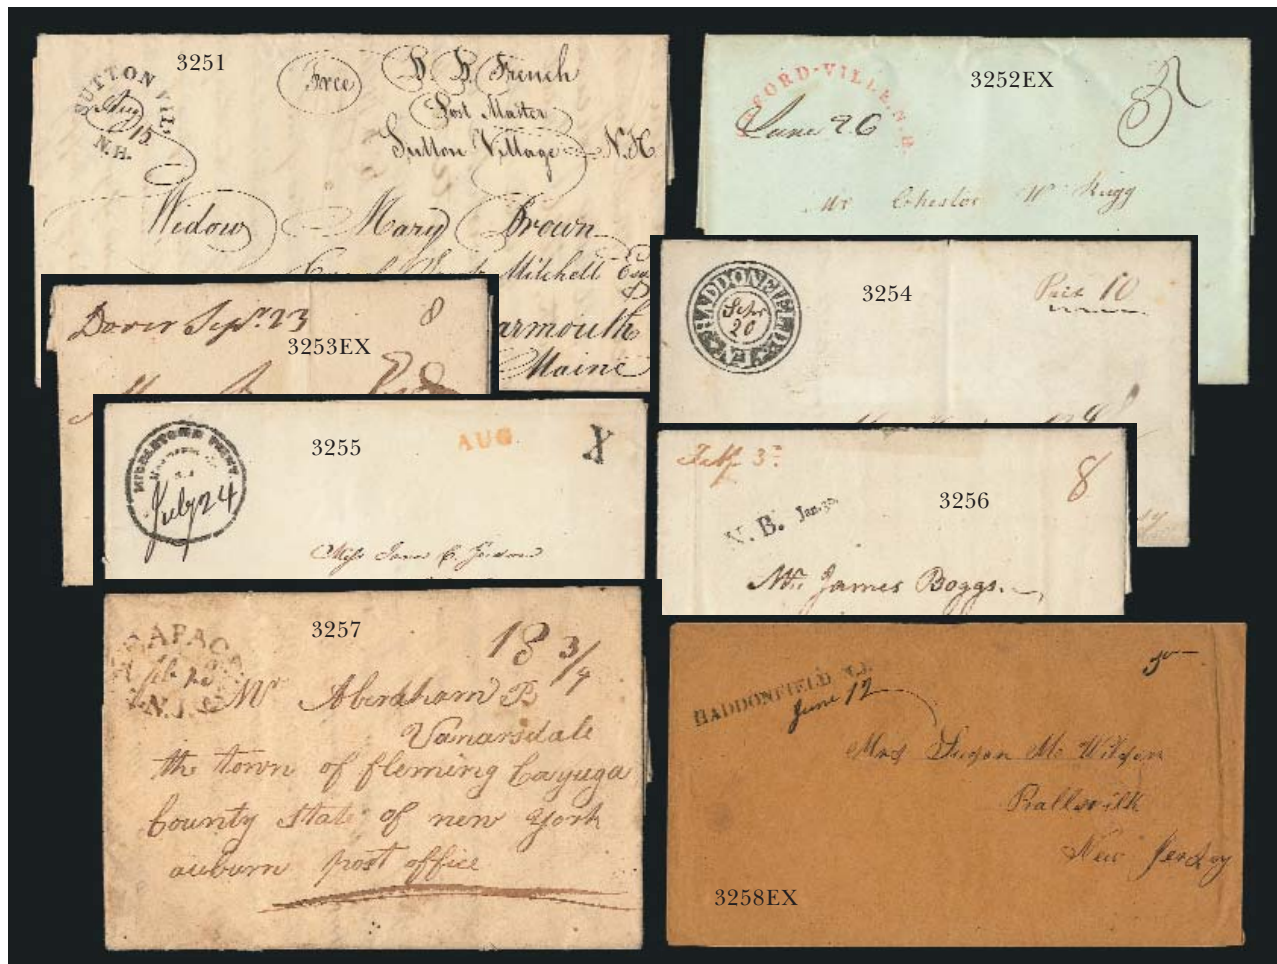 3251
SUTTON VIL.
Aug 15
N.H.
Free
French
Post Master
Sutton Village N.H
Widow Mary Brown
Mitchell Esq
armouth
Maine
3252EX
FORD-VILLE N.H.
June 26
Mr Chester W Rugg
3253EX
Dover Sepr. 23
8
3254
HADDONFIELD
Sepr
20
Paid 10
3255
MIDDLETOWN POINT
July 24
AUG
X
Miss
3256
3
8
N. B. Jan.
Mr. James Boggs.
3257
Feb 23
N.J.
18 3/4
Mr Aberkham B
Vanarsdale
the town of fleming Cayuga
County State of new york
auburn post office
3258EX
HADDONFIELD N.J.
June 12
Mrs Susan M. Wilson
New Jersey